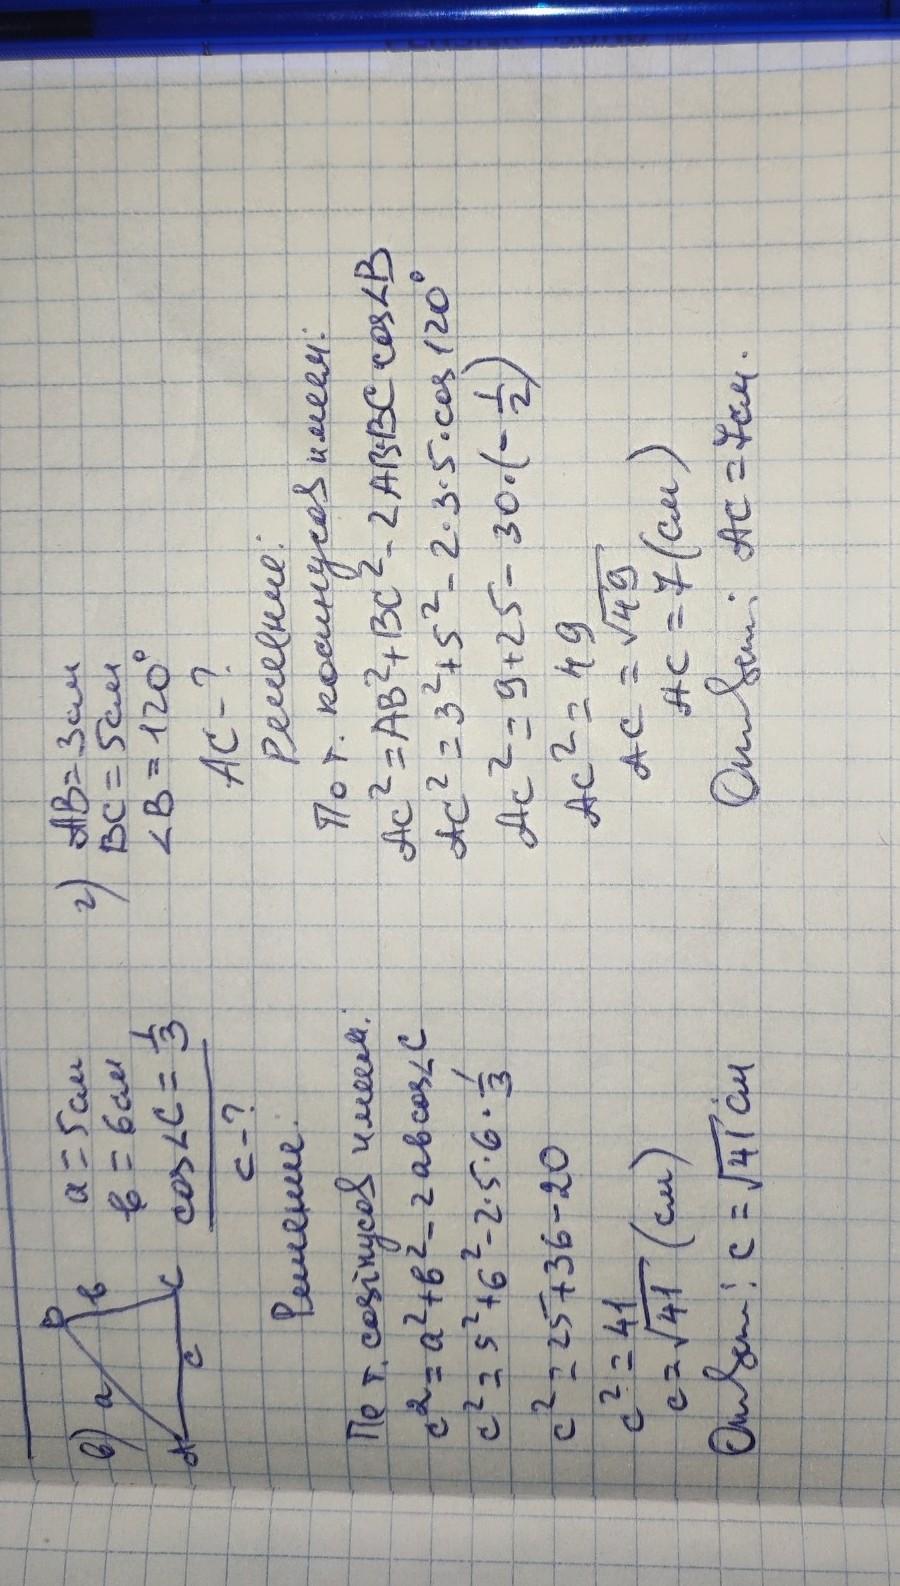 в)
a
B
в
A
c
C
a = 5см
в = 6см
cos∠C = 1/3
c - ?
Решение.
По т. cosинусов имеем:
c² = a² + в² - 2ав cos∠C
c² = 5² + 6² - 2·5·6·1/3
c² = 25 + 36 - 20
c² = 41
c = √41 (см)
Ответ: c = √41 см
г) AB = 3см
BC = 5см
∠B = 120°
AC - ?
Решение:
По т. косинусов имеем:
AC² = AB² + BC² - 2AB·BC cos∠B
AC² = 3² + 5² - 2·3·5·cos 120°
AC² = 9 + 25 - 30·(-1/2)
AC² = 49
AC = √49
AC = 7 (см)
Ответ: AC = 7см.